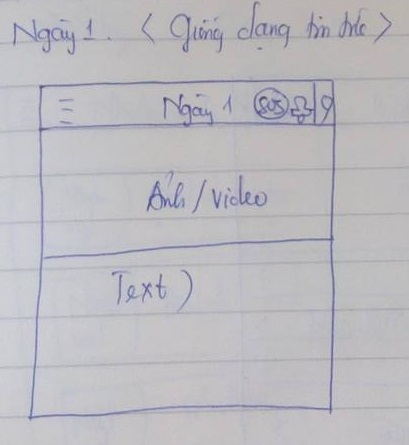 Ngày 1. < Giống dạng tin tức >
Ngày 1 SOS
Ảnh / video
Text )